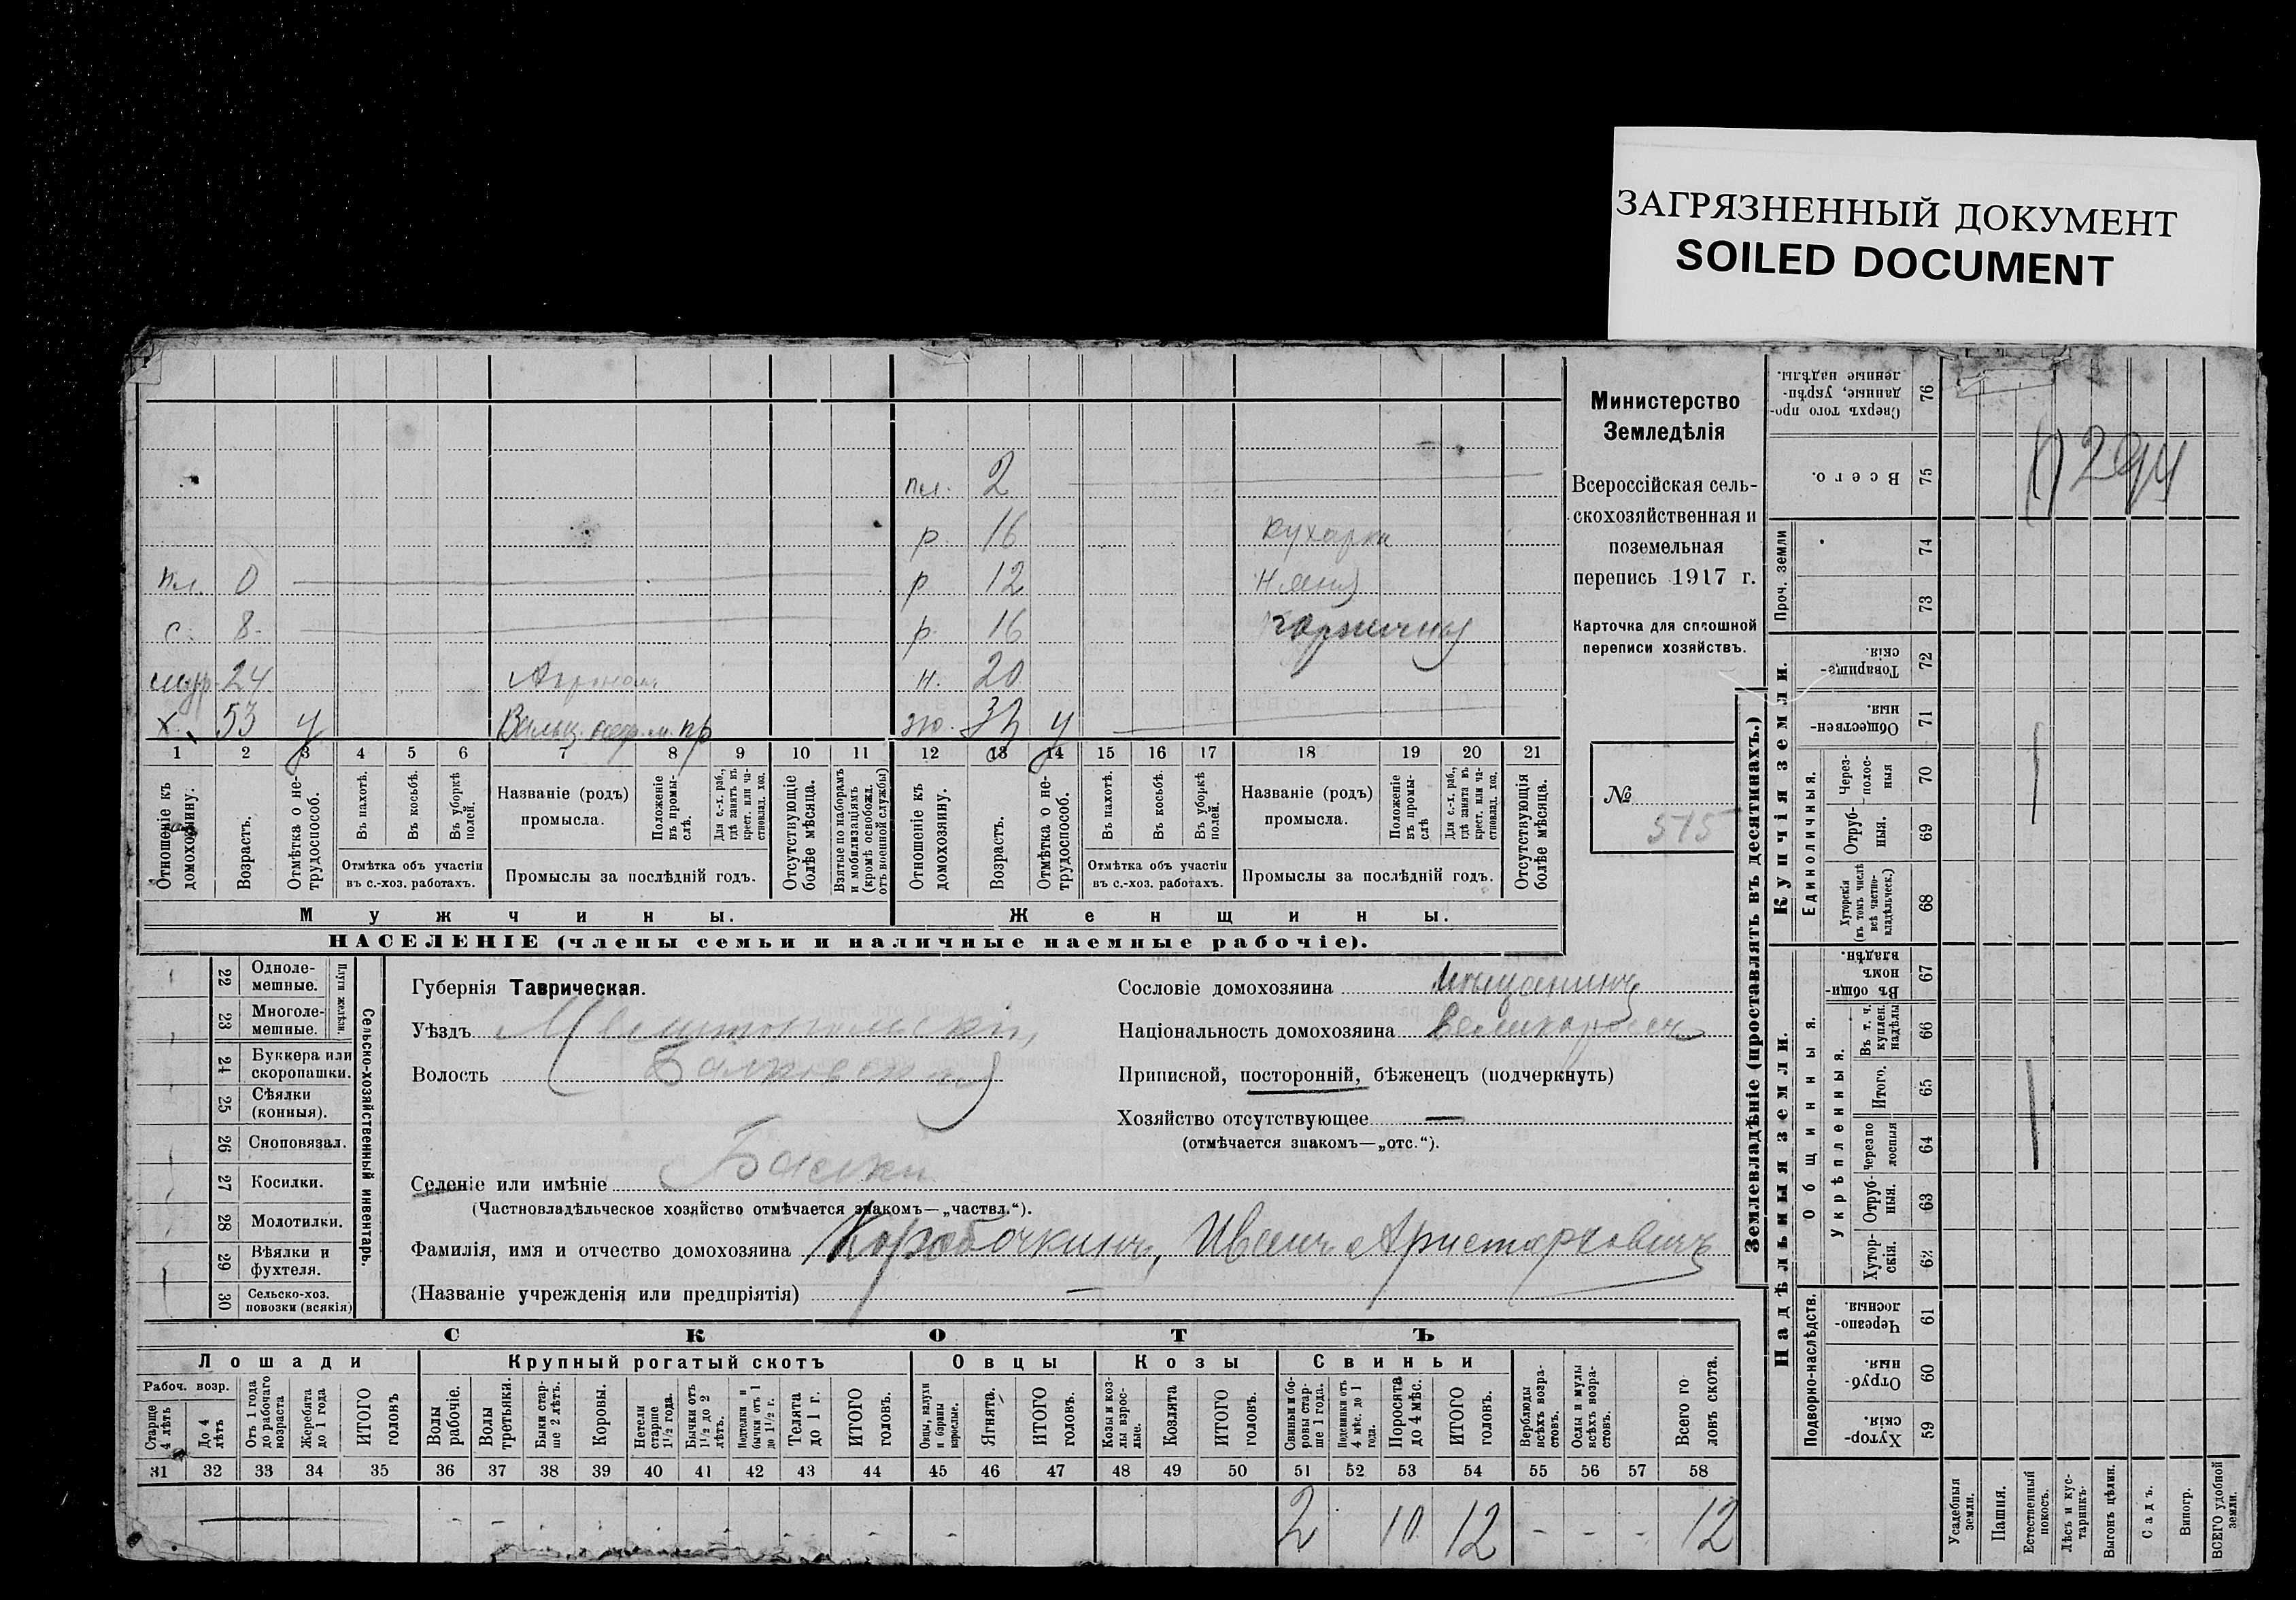 ЗАГРЯЗНЕННЫЙ ДОКУМЕНТ
SOILED DOCUMENT
пл. 2
р 16 кухарка
пл. 0 р 12 няня
с. 8 р. 16 горничная
24 н. 20
х. 53 у
1 2 3 4 5 6 7 8 9 10 11 12 13 14 15 16 17 18 19 20 21
Отношеніе къ домохозяину.
Возрастъ.
Отмѣтка о нетрудоспособ.
Въ пахотѣ.
Въ косьбѣ.
Въ уборкѣ полей.
Отмѣтка объ участіи въ с.-хоз. работахъ.
Названіе (родъ) промысла.
Положеніе въ промыслѣ.
Для с.-х. раб., гдѣ занятъ въ крест. или частновлад. хоз.
Промыслы за послѣдній годъ.
Отсутствующіе болѣе мѣсяца.
Взятые по наборамъ и мобилизаціямъ (кромѣ освобожд. отъ военной службы)
Отношеніе къ домохозяину.
Возрастъ.
Отмѣтка о нетрудоспособ.
Въ пахотѣ.
Въ косьбѣ.
Въ уборкѣ полей.
Отмѣтка объ участіи въ с.-хоз. работахъ.
Названіе (родъ) промысла.
Положеніе въ промыслѣ
Для с.-х. раб., гдѣ занята въ крест. или частновлад. хоз.
Промыслы за послѣдній годъ.
Отсутствующія болѣе мѣсяца.
Мужчины. Женщины.
НАСЕЛЕНІЕ (члены семьи и наличные наемные рабочіе).
Министерство
Земледѣлія
Всероссійская сель-
скохозяйственная и
поземельная
перепись 1917 г.
Карточка для сплошной
переписи хозяйствъ.
№
515
22 Одноле-
мешные.
23 Многоле-
мешные.
Плуги желѣзн.
24 Буккера или
скоропашки.
25 Сѣялки
(конныя).
26 Сноповязал.
27 Косилки.
28 Молотилки.
29 Вѣялки и
фухтеля.
30 Сельско-хоз.
повозки (всякія)
Сельско-хозяйственный инвентарь.
Губернія Таврическая.
Уѣздъ Мелитопольскій,
Волость Балковская
Селеніе или имѣніе Балки
(Частновладѣльческое хозяйство отмѣчается знакомъ—„частвл.“).
Фамилія, имя и отчество домохозяина Коробочкинъ, Иванъ Аристарховичъ
(Названіе учрежденія или предпріятія) —
Сословіе домохозяина мѣщанинъ
Національность домохозяина великороссъ
Приписной, посторонній, бѣженецъ (подчеркнуть)
Хозяйство отсутствующее —
(отмѣчается знакомъ—„отс.“).
СКОТЪ
Лошади Крупный рогатый скотъ Овцы Козы Свиньи
Рабоч. возр.
Старще 4 лѣтъ
До 4 лѣтъ
Отъ 1 года до рабочаго возраста
Жеребята до 1 года
ИТОГО головъ
Волы рабочіе.
Волы третьяки.
Быки старше 2 лѣтъ.
Коровы.
Нетели старше 1½ года.
Бычки отъ 1½ до 2 лѣтъ.
Подтелки и бычки отъ 1 до 1½ г.
Телята до 1 г.
ИТОГО головъ.
Овцы, валухи и бараны взрослые.
Ягнята.
ИТОГО головъ.
Козы и козлы взрослые.
Козлята
ИТОГО головъ.
Свиньи и боровы старше 1 года.
Подсвинки отъ 4 мѣс. до 1 года.
Поросята до 4 мѣс.
ИТОГО головъ.
Верблюды всѣхъ возрастовъ.
Ослы и мулы всѣхъ возрастовъ.
Всего головъ скота.
31 32 33 34 35 36 37 38 39 40 41 42 43 44 45 46 47 48 49 50 51 52 53 54 55 56 57 58
2 10 12 - - - 12
Землевладѣніе (проставлять въ десятинахъ.)
Купчія земли.
Сверхъ того проданные, укрѣпленные надѣлы. 76
Всего. 75
Проч. земли 74
73
Товарищескія. 72
Общественныя. 71
Единоличныя.
Черезполосныя 70
Отрубныя. 69
Хуторскія (въ томъ числѣ всѣ частновладѣльческ.) 68
Надѣльныя земли.
Общинныя.
Въ общинномъ владѣн. 67
Укрѣпленныя.
Въ т. ч. куплен. надѣлы 66
Итого. 65
Черезполосныя 64
Отрубныя. 63
Хуторскія. 62
Подворно-наслѣдств.
Черезполосныя. 61
Отрубныя. 60
Хуторскія. 59
Усадебныя земли.
Пашня.
Естественный покосъ.
Лѣсъ и кустарникъ.
Выгонъ цѣлин.
Садъ.
Виногр.
ВСЕГО удобной земли.